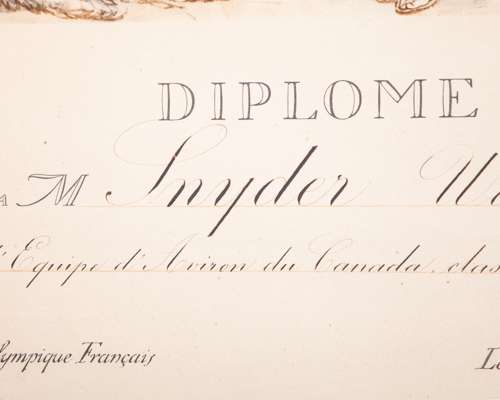 DIPLOME
A M Snyder
l'Equipe d'Aviron du Canada, clas
lympique Français
Le